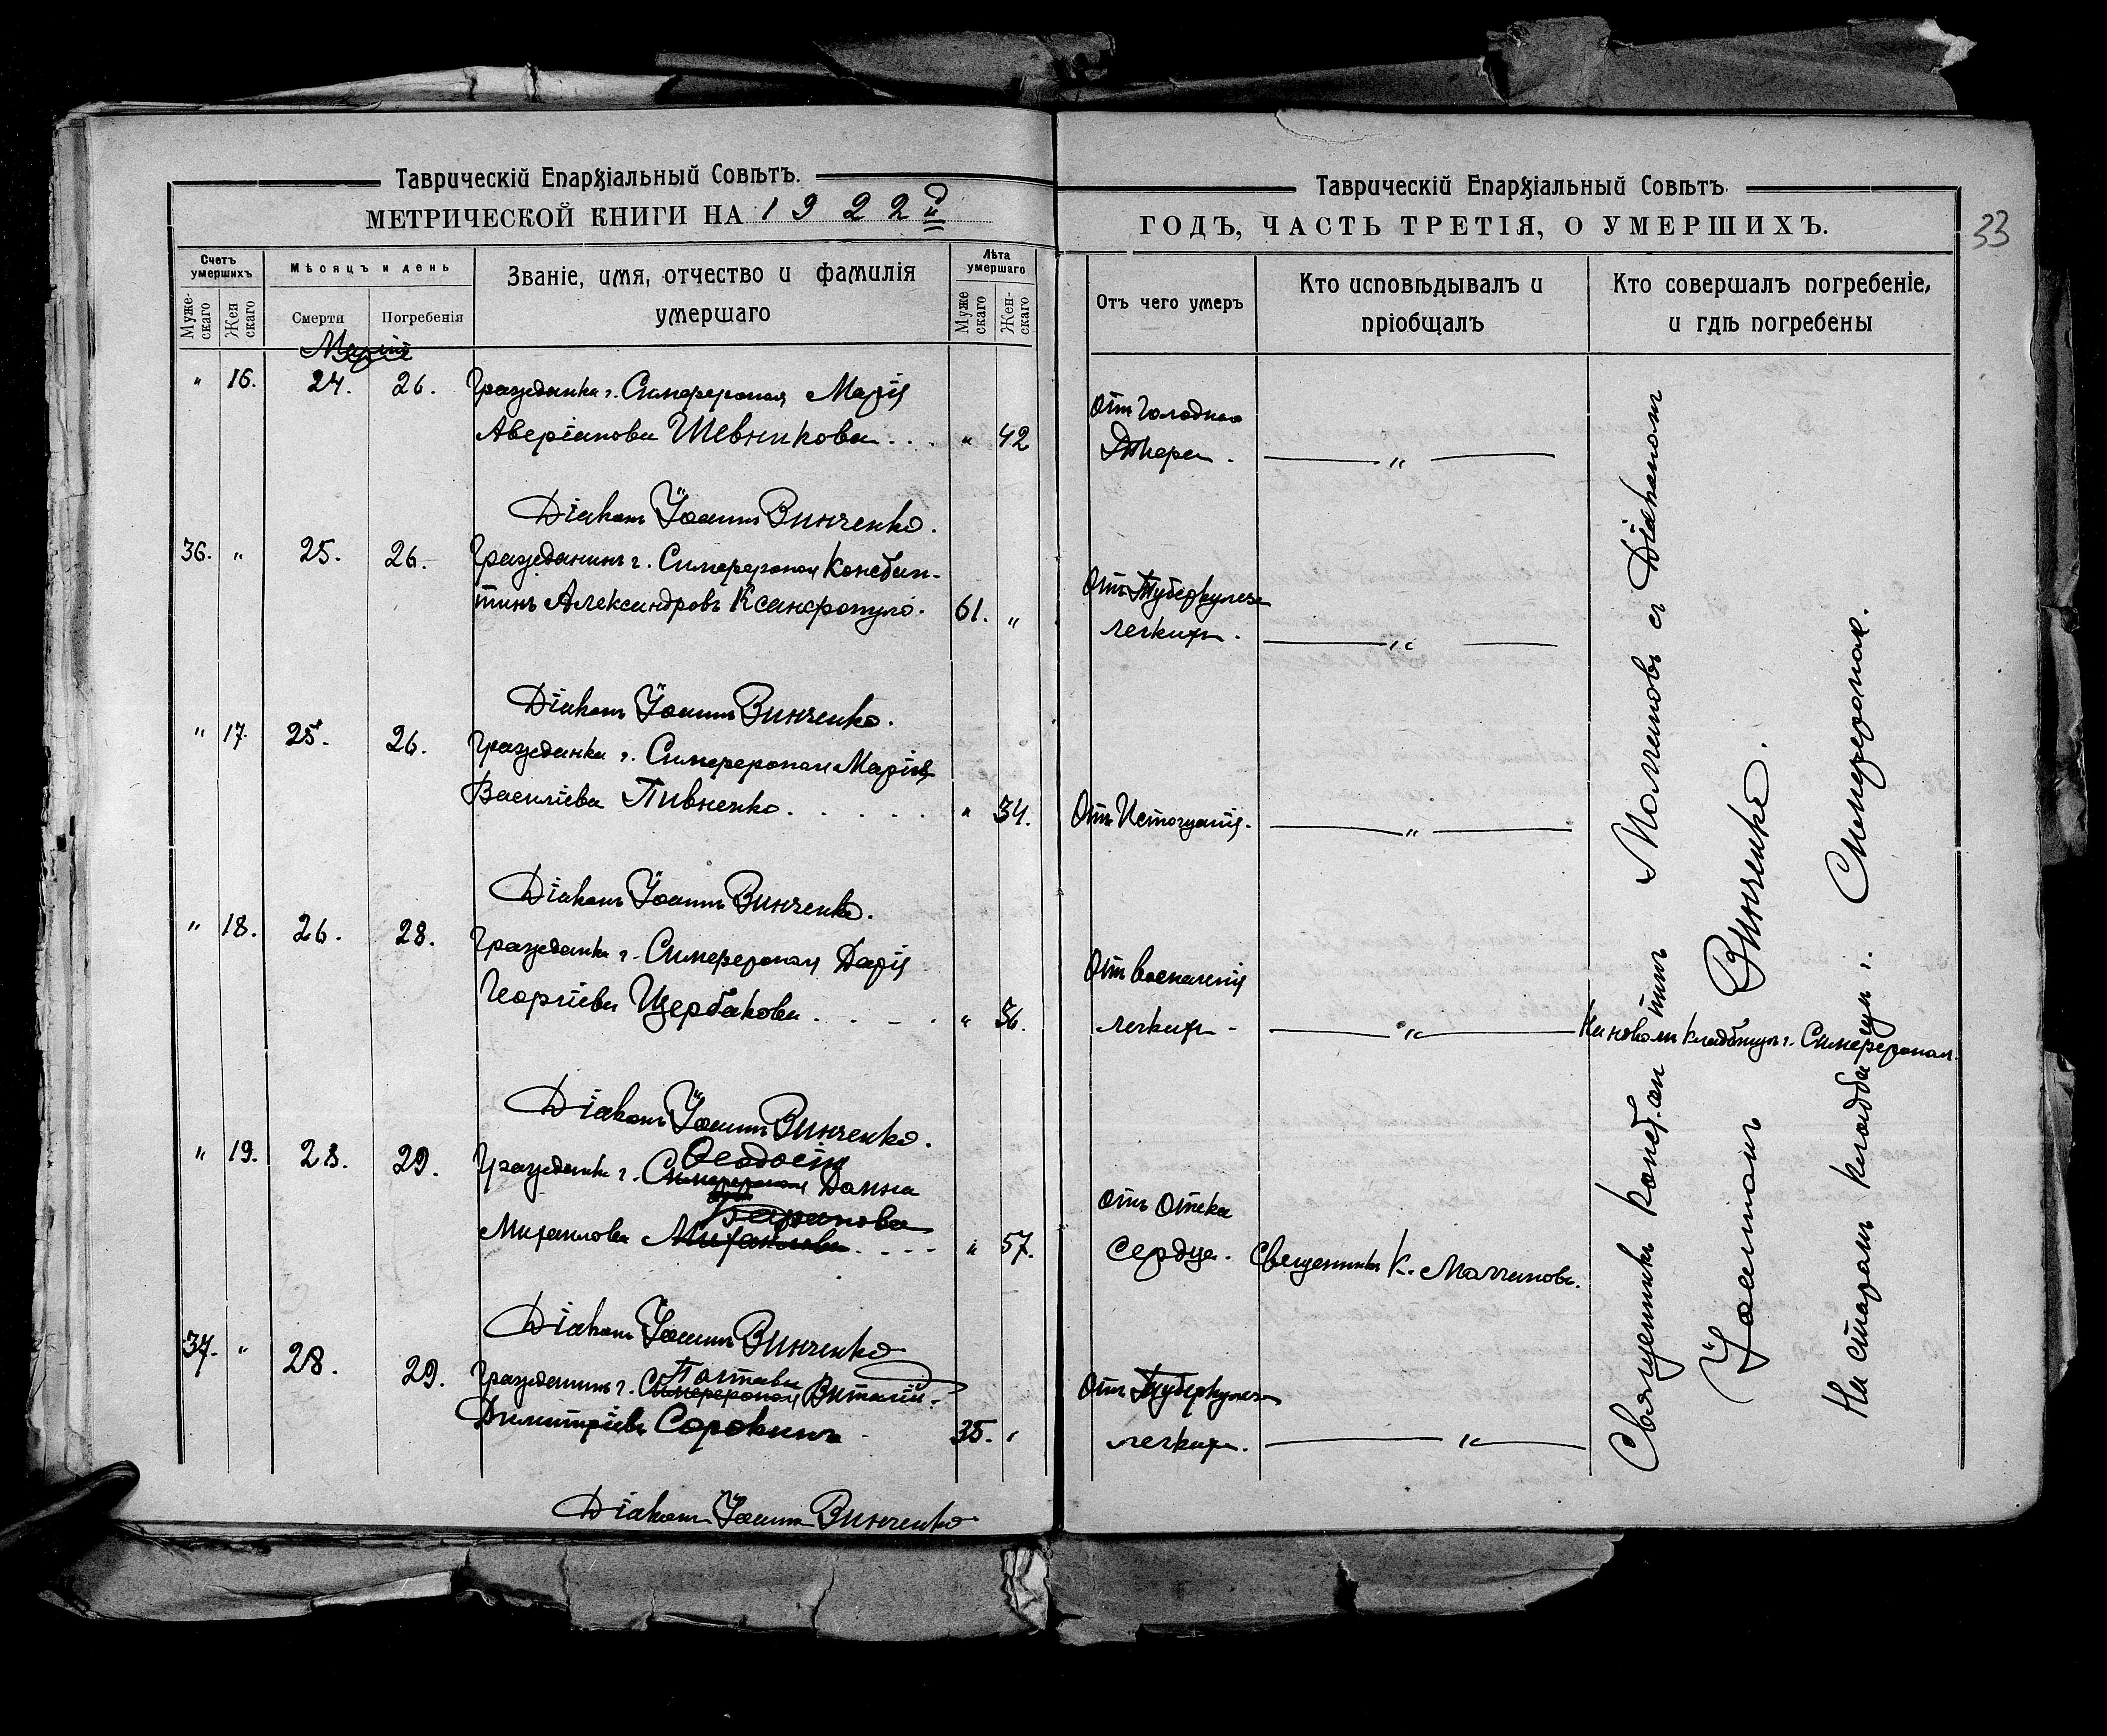 Таврическій Епархіальный Совѣтъ.
МЕТРИЧЕСКОЙ КНИГИ НА 1922й
Счетъ умершихъ
Мужескаго
Женскаго
Мѣсяцъ и день
Смерти
Погребенія
Званіе, имя, отчество и фамилія
умершаго
Лѣта умершаго
Мужескаго
Женскаго
" 16. 24. 26. Гражданка г. Симферополя Марія
Аверіанова Шевникова . . . " 42
Діаконъ Іоаннъ Винченко.
36. " 25. 26. Гражданинъ г. Симферополя Констан-
тинъ Александровъ Ксанфопуло. 61. "
Діаконъ Іоаннъ Винченко.
" 17. 25. 26. Гражданка г. Симферополя Марія
Василіева Пивненко . . . . . " 34.
Діаконъ Іоаннъ Винченко.
" 18. 26. 28. Гражданка г. Симферополя Дарія
Георгіева Щербакова . . . . " 36.
Діаконъ Іоаннъ Винченко.
Ѳеодосіи
" 19. 28. 29. Гражданка г. Симферополя Домна
Баранова
Михаилова Михаилова . . . . " 57.
Діаконъ Іоаннъ Винченко
Полтавы
37. " 28. 29. Гражданинъ г. Симферополя Виталій
Димитріевъ Сорокинъ 35. "
Діаконъ Іоаннъ Винченко
Таврическій Епархіальный Совѣтъ.
ГОДЪ, ЧАСТЬ ТРЕТІЯ, О УМЕРШИХЪ.
33
Отъ чего умеръ
Кто исповѣдывалъ и
пріобщалъ
Кто совершалъ погребеніе,
и гдѣ погребены
Отъ голоднаго
— " —
Отъ Туберкулеза
легкихъ. — " —
Отъ Истощенія. — " —
Отъ воспаленія
легкихъ — " — На новомъ кладбищѣ г. Симферополя.
Отъ Отека
Сердца. Священникъ К.
Отъ Туберкулеза
легкихъ. — " —
Священникъ Конст.антинъ съ Діакономъ
Іоанномъ Винченко.
На старомъ кладбищѣ г. Симферополя.